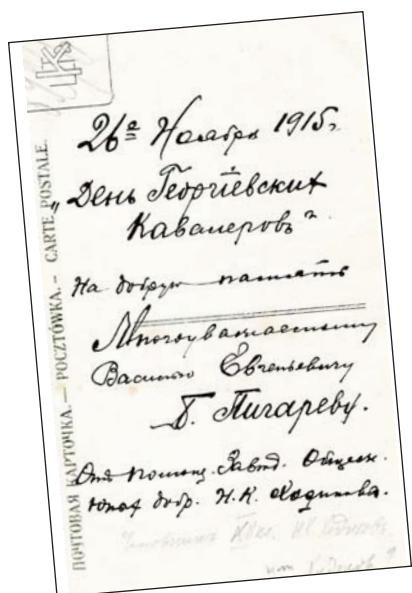 ПОЧТОВАЯ КАРТОЧКА. — POCZTÓWKA. — CARTE POSTALE.
26го Ноября 1915 г.
„День Георгіевскихъ
Кавалеровъ"
На добрую память
Многоуважаемому
Василію Евгеньевичу
Пигареву.
Отъ Помощ. Завѣд.
добр. Н.К.